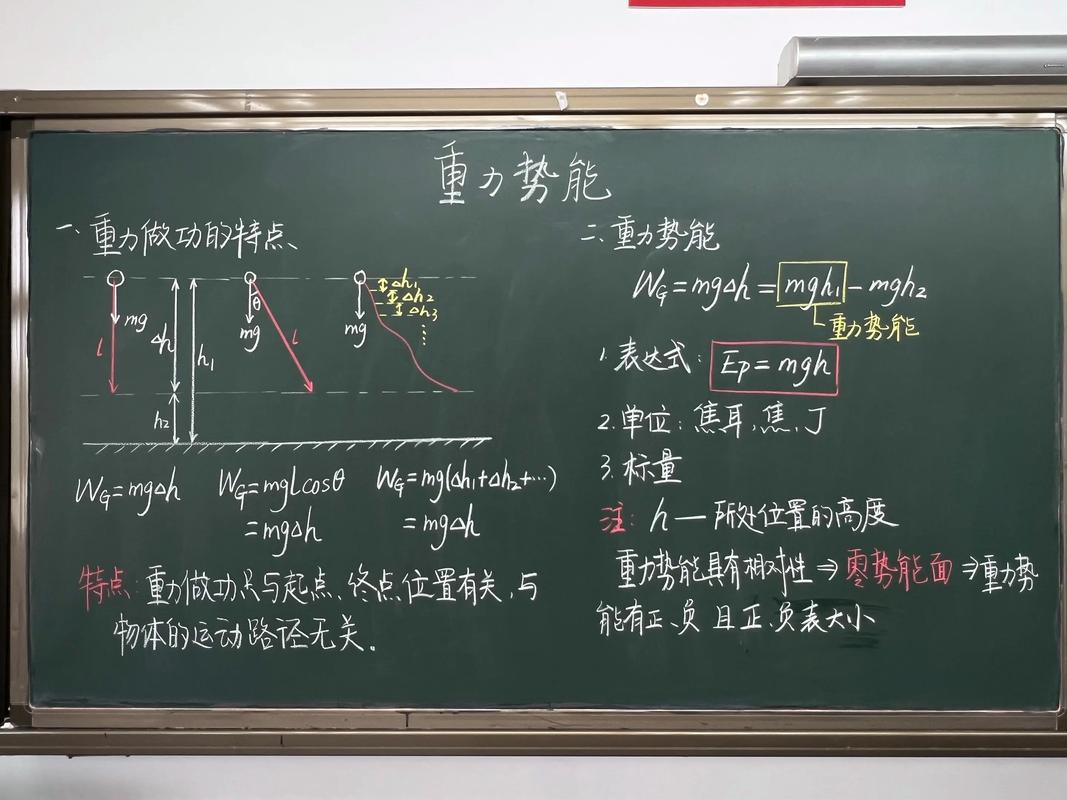 重力势能
一、重力做功的特点、
mg
l
Δh
h₁
h₂
θ
mg
l
mg
Δh₁
Δh₂
Δh₃
⋮
W_G=mgΔh
W_G=mglcosθ
=mgΔh
W_G=mg(Δh₁+Δh₂+…)
=mgΔh
特点:重力做功只与起点、终点位置有关,与
物体的运动路径无关。
二、重力势能
W_G=mgΔh=mgh₁-mgh₂
重力势能
1.表达式:Ep=mgh
2.单位:焦耳,焦,J
3.标量
注:h—所处位置的高度
重力势能具有相对性⇒零势能面⇒重力势
能有正、负 且正、负表大小